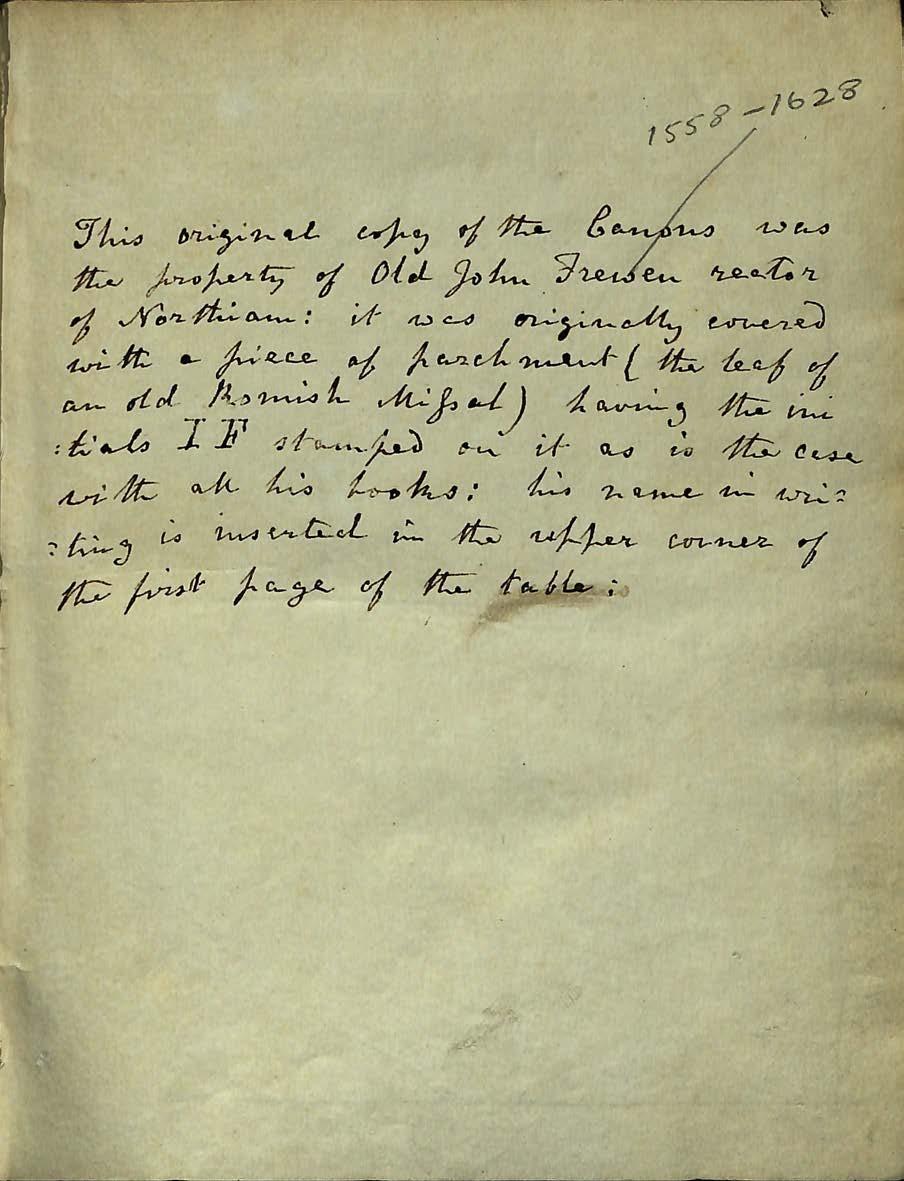 1558-1628
This original copy of the Canons was
the property of Old John Frewen rector
of Northiam: it was originally covered
with a piece of parchment (the leaf of
an old Romish Miſsal) having the ini
:tials IF stamped on it as is the case
with all his books: his name in wri:
:ting is inserted in the upper corner of
the first page of the table: